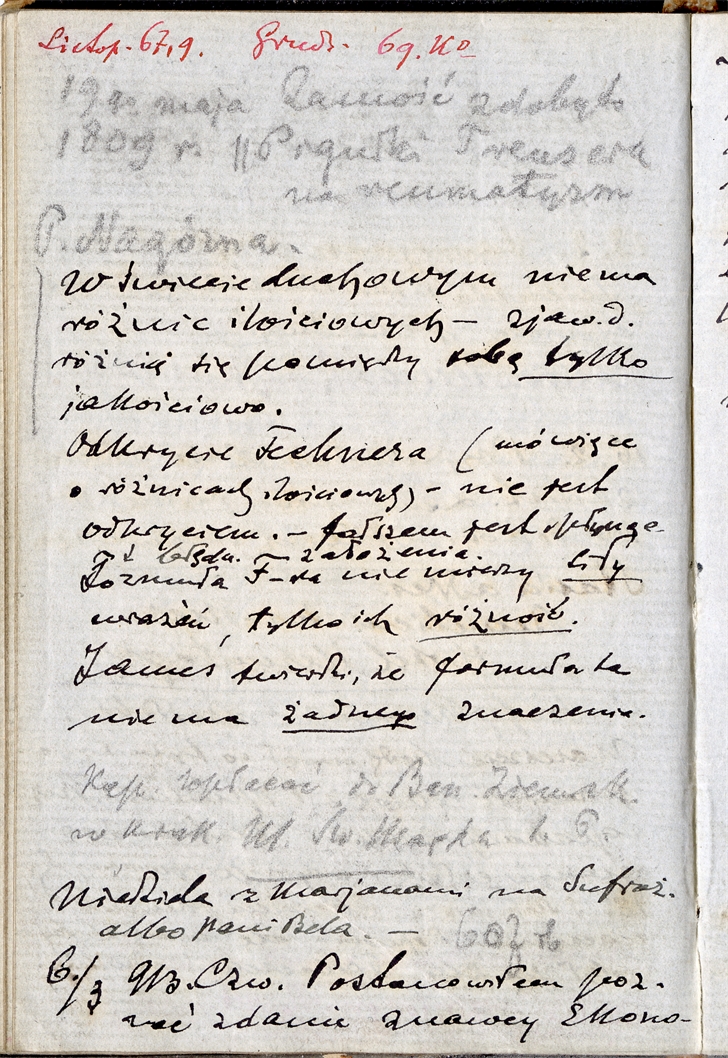 Listop. 67,9. Grudz. 69. Ko
19 go maja Zamość zdobyto
1809 r. || Pigułki Treusera
na reumatyzm
P. Nagórna.
W świecie duchowym niema
różnic ilościowych – zjaw. d.
różnią się pomiędzy sobą tylko
jakościowo.
Odkrycie Fechnera (mówiące
o różnicach ilościowych) – nie jest
odkryciem. – fałszem jest
z błędn. – założenia.
Formuła F-ra nie mierzy siły
wrażeń, tylko ich różność.
James twierdzi, że formuła ta
nie ma żadnego znaczenia.
Kap. wpłacać do Ban. Ziemsk.
w Krak. Ul. Św. Marka L. 6.
Niedziela z Marjanami na Sufraż.
albo pani Bela. – 607
6./3 913. Czw. Postanowiłem poz-
nać zdanie znawcy Ekono-